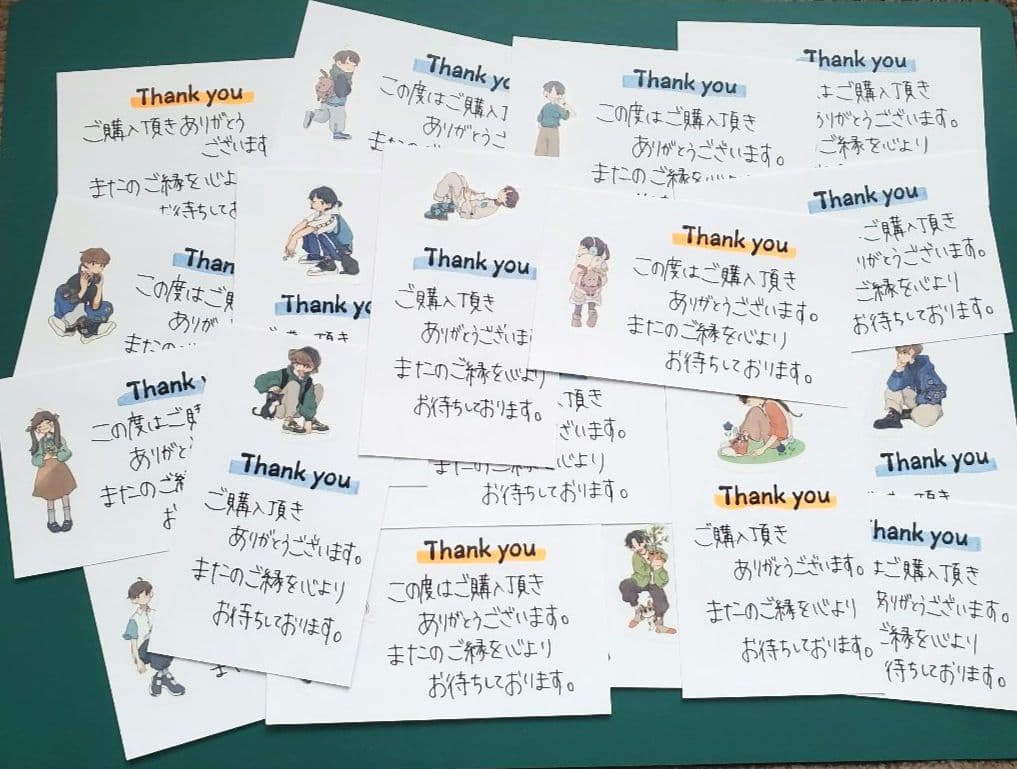 Thank you
ご購入頂きありがとう
ございます
またのご縁を心より
お待ちして
Thank yo
この度はご購入
ありがとうご
また
Thank you
この度はご購入頂き
ありがとうございます。
またのご縁を心より
Thank you
はご購入頂き
りがとうございます。
ご縁を心より
Thank you
ご購入頂き
りがとうございます。
ご縁を心より
お待ちしております。
Than
この度はご購
ありが
またの
Thank yo
ご購入頂き
Thank you
ご購入頂き
ありがとうござい
またのご縁を心より
お待ちしております。
Thank you
この度はご購入頂き
ありがとうございます。
またのご縁を心より
お待ちしております。
Thank
この度はご購
ありがと
またのご
お
Thank you
ご購入頂き
ありがとうございます。
またのご縁を心より
お待ちしております。
入頂き
ございます。
またのご縁を心より
お待ちしております。
Thank you
この度はご購入頂き
ありがとうございます。
またのご縁を心より
お待ちしております。
Thank you
ご購入頂き
ありがとうございます。
またのご縁を心より
お待ちしております。
Thank you
hank you
はご購入頂き
ありがとうございます。
ご縁を心より
待ちしております。